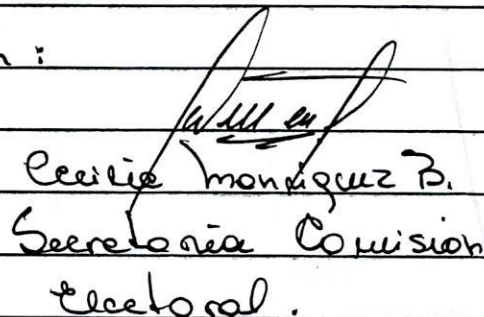 n:
Cecilia Manriquez B.
Secretaria Comision
Electoral.